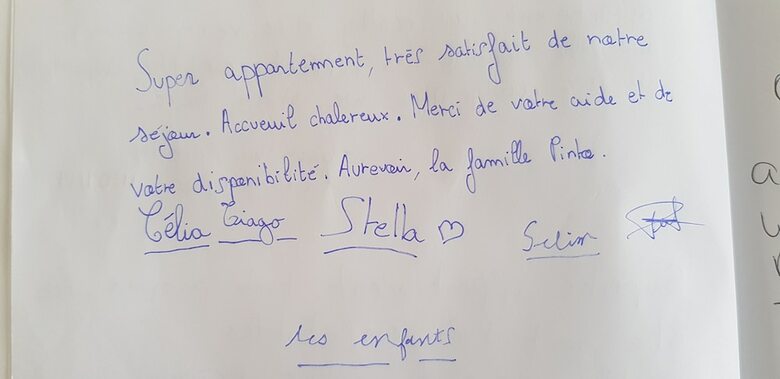 Super appartement, très satisfait de notre
séjour. Accueuil chalereux. Merci de votre aide et de
votre disponibilité. Aurevoir, la famille Pinto.
Célia Tiago Stella ♡ Selim
les enfants